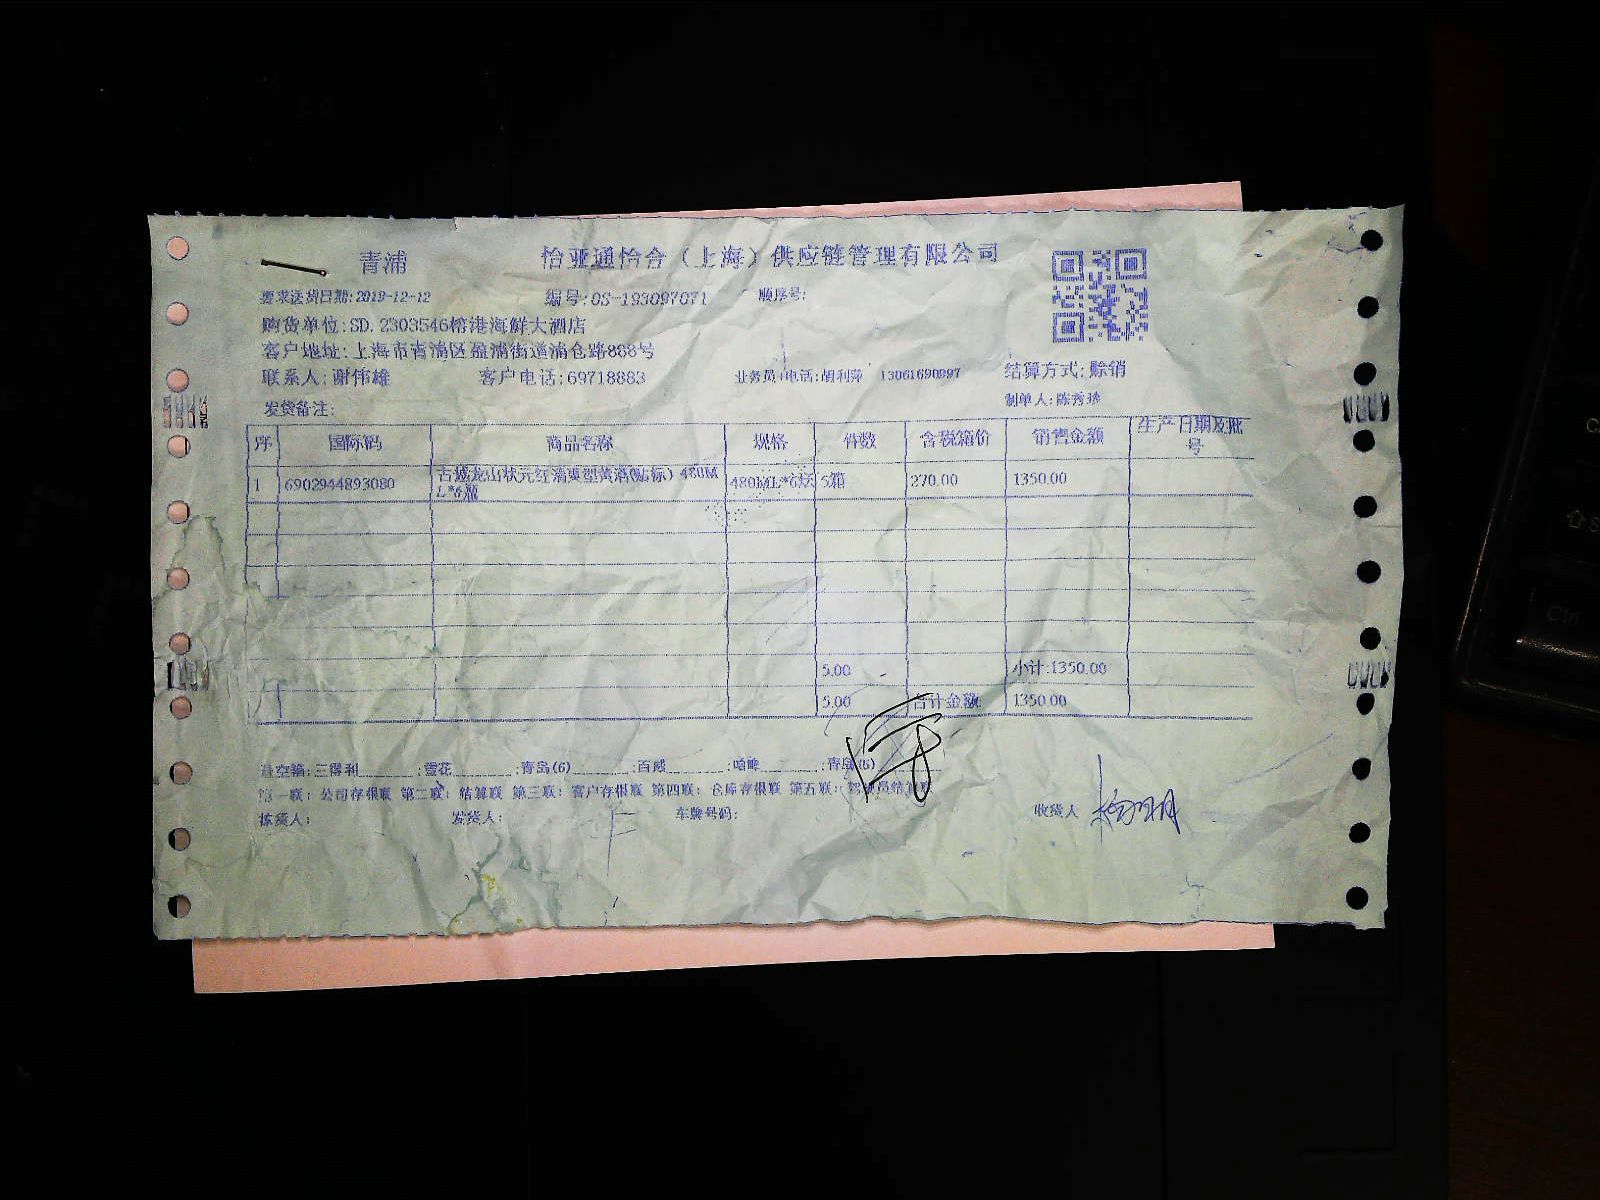 青浦 怡亚通怡合（上海）供应链管理有限公司
要求送货日期:2019-12-12 编号:OS-193097071 顺序号:
购货单位:SD.2303546榕港海鲜大酒店
客户地址:上海市青浦区盈浦街道浦仓路888号
联系人:谢伟雄 客户电话:69718883 业务员+电话:胡利萍 13061690997 结算方式:赊销
发货备注: 制单人:陈秀珍
序 国际码 商品名称 规格 件数 含税箱价 销售金额 生产日期及批号
1 6902944893080 古越龙山状元红清爽型黄酒(贴标) 480ML*6瓶 480ML*6坛 5箱 270.00 1350.00
5.00 小计:1350.00
5.00 合计金额 1350.00
量空箱:三得利______:雪花______:青岛(6)______:百威______:哈啤______:青岛(6)
第一联：公司存根联 第二联：结算联 第三联：客户存根联 第四联：仓库存根联 第五联：驾驶员结算联
拣货人： 发货人： 车牌号码: 收货人